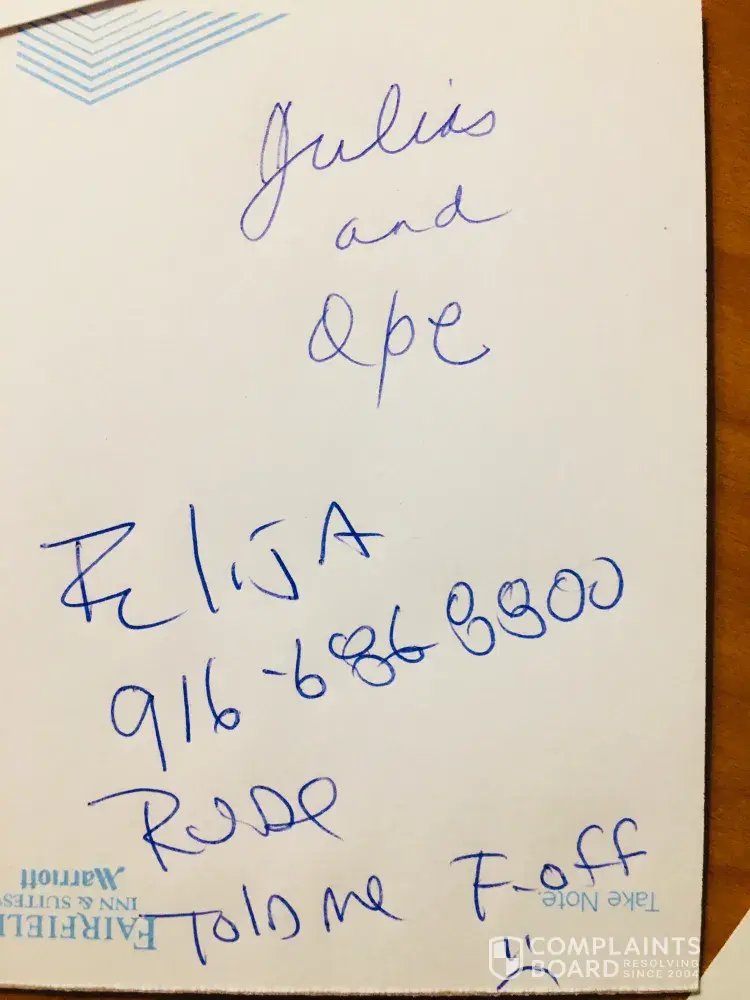 Julias
and
Ope
ElijA
916-686 8800
RuDe
TolD me F-off
Take Note.
Marriott
INN & SUITES
FAIRFIELD
COMPLAINTS
BOARD RESOLVING
SINCE 2004